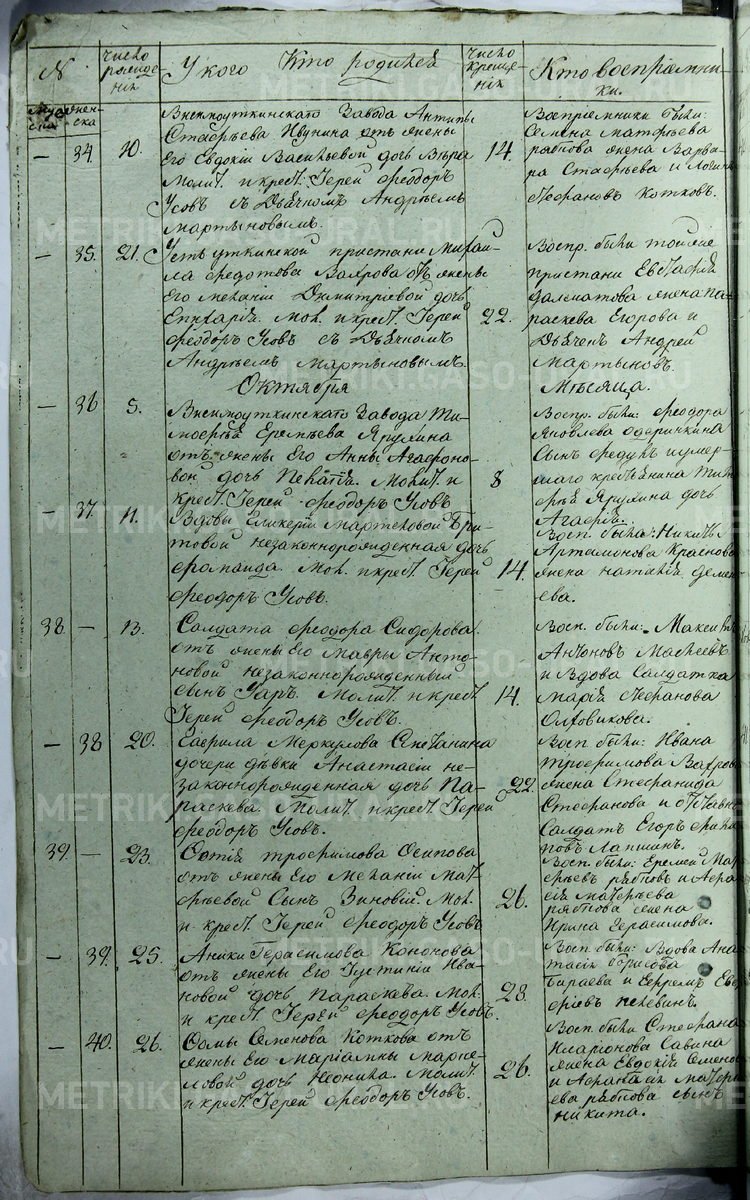 N
число рожде-
нія
У кого Кто родился
число креще-
нія
Кто воспріемни-
ки.
Муже-
ска
женс-
ка
34 20.
Висимоуткинскаго Завода Антипы
Стафѣева Ивунина отъ жены
его Евдокіи Васильевой дочь Вѣра
Молит. и крест. Іерей Феодоръ
Усовъ съ Дьячкомъ Андрѣемъ
Мартыновымъ.
14.
Воспріемники были:
Семена Матфѣева
рябкова жена Варва-
ра Стафѣева и
Стефановъ Котковъ.
35. 21.
Устьуткинской пристани Михаи-
ла Федотова отъ жены
его Меланіи Димитріевой дочь
Епихарія. Мол. и крест. Іерей
Феодоръ Усовъ съ Дьячкомъ
Андрѣемъ Мартыновымъ.
22.
Воспр. были тойже
пристани Евстафія
Далматова жена Па-
раскева Егорова и
Дьячекъ Андрей
Мартыновъ.
Октября Мѣсяца.
36 5.
Висимоуткинскаго Завода Ти-
мофѣя Еремѣева Ярулина
отъ жены его Анны Агафоно-
вой дочь Пелагія. Молит. и
крест. Іерей Феодоръ Усовъ
8
Воспр. были: Феодора
Яковлева одеринкина
сынъ и умер-
шаго Тимо-
фѣя Ярулина дочь
Агафія.
37. 11.
Вдовы Гликеріи Мартеловой Бри-
товой незаконнорожденная дочь
Фомаида. Мол. и крест. Іерей
Феодоръ Усовъ.
14.
Восп. были: Никиты
Артамонова Краснова
жена Наталія Демен-
ева.
38. 13.
Солдата Феодора Сидорова
отъ жены его Мавры Анто-
новой незаконнорожденный
сынъ Уаръ. Молит. и крест.
Іерей Феодоръ Усовъ.
14.
Восп. были: Максимъ
Антоновъ Мосѣевъ
и Вдова Солдатка
Марія Стефанова
Олховикова.
38 20.
Гаврила Меркулова
дочери дѣвки Анастасіи не-
законнорожденная дочь Па-
раскева. Молит. и крест. Іерей
Феодоръ Усовъ.
22.
Восп. были: Ивана
Трофимова
жена Стефанида
Стефанова и отставн.
Солдатъ Егоръ Фили-
повъ Лапшинъ.
39. 23.
Фотія Трофимова Осипова
отъ жены его Меланіи Мат-
фѣевой сынъ Зиновій. Мол.
и крест. Іерей Феодоръ Усовъ
26.
Восп. были: Еремей Мат-
фѣевъ рябковъ и Афана-
сія Матфѣева
рябкова жена
Ирина Герасимова.
39. 25.
Аники Герасимова Кононова
отъ жены его Іустиніи Ива-
новой дочь Параскева. Мол.
и крест. Іерей Феодоръ Усовъ.
28.
Восп. были: Вдова Ана-
стасія Борисова
и Ефремъ
Пелевинъ.
40. 26.
Фомы Семенова Коткова отъ
жены его Маріамны Марке-
ловой дочь Неонила. Молит.
и крест. Іерей Феодоръ Усовъ.
26.
Восп. были Стефана
Иларіонова Савина
жена Евдокія Семенова
и Афанасія Матфѣ-
ева рябкова сынъ
Никита.